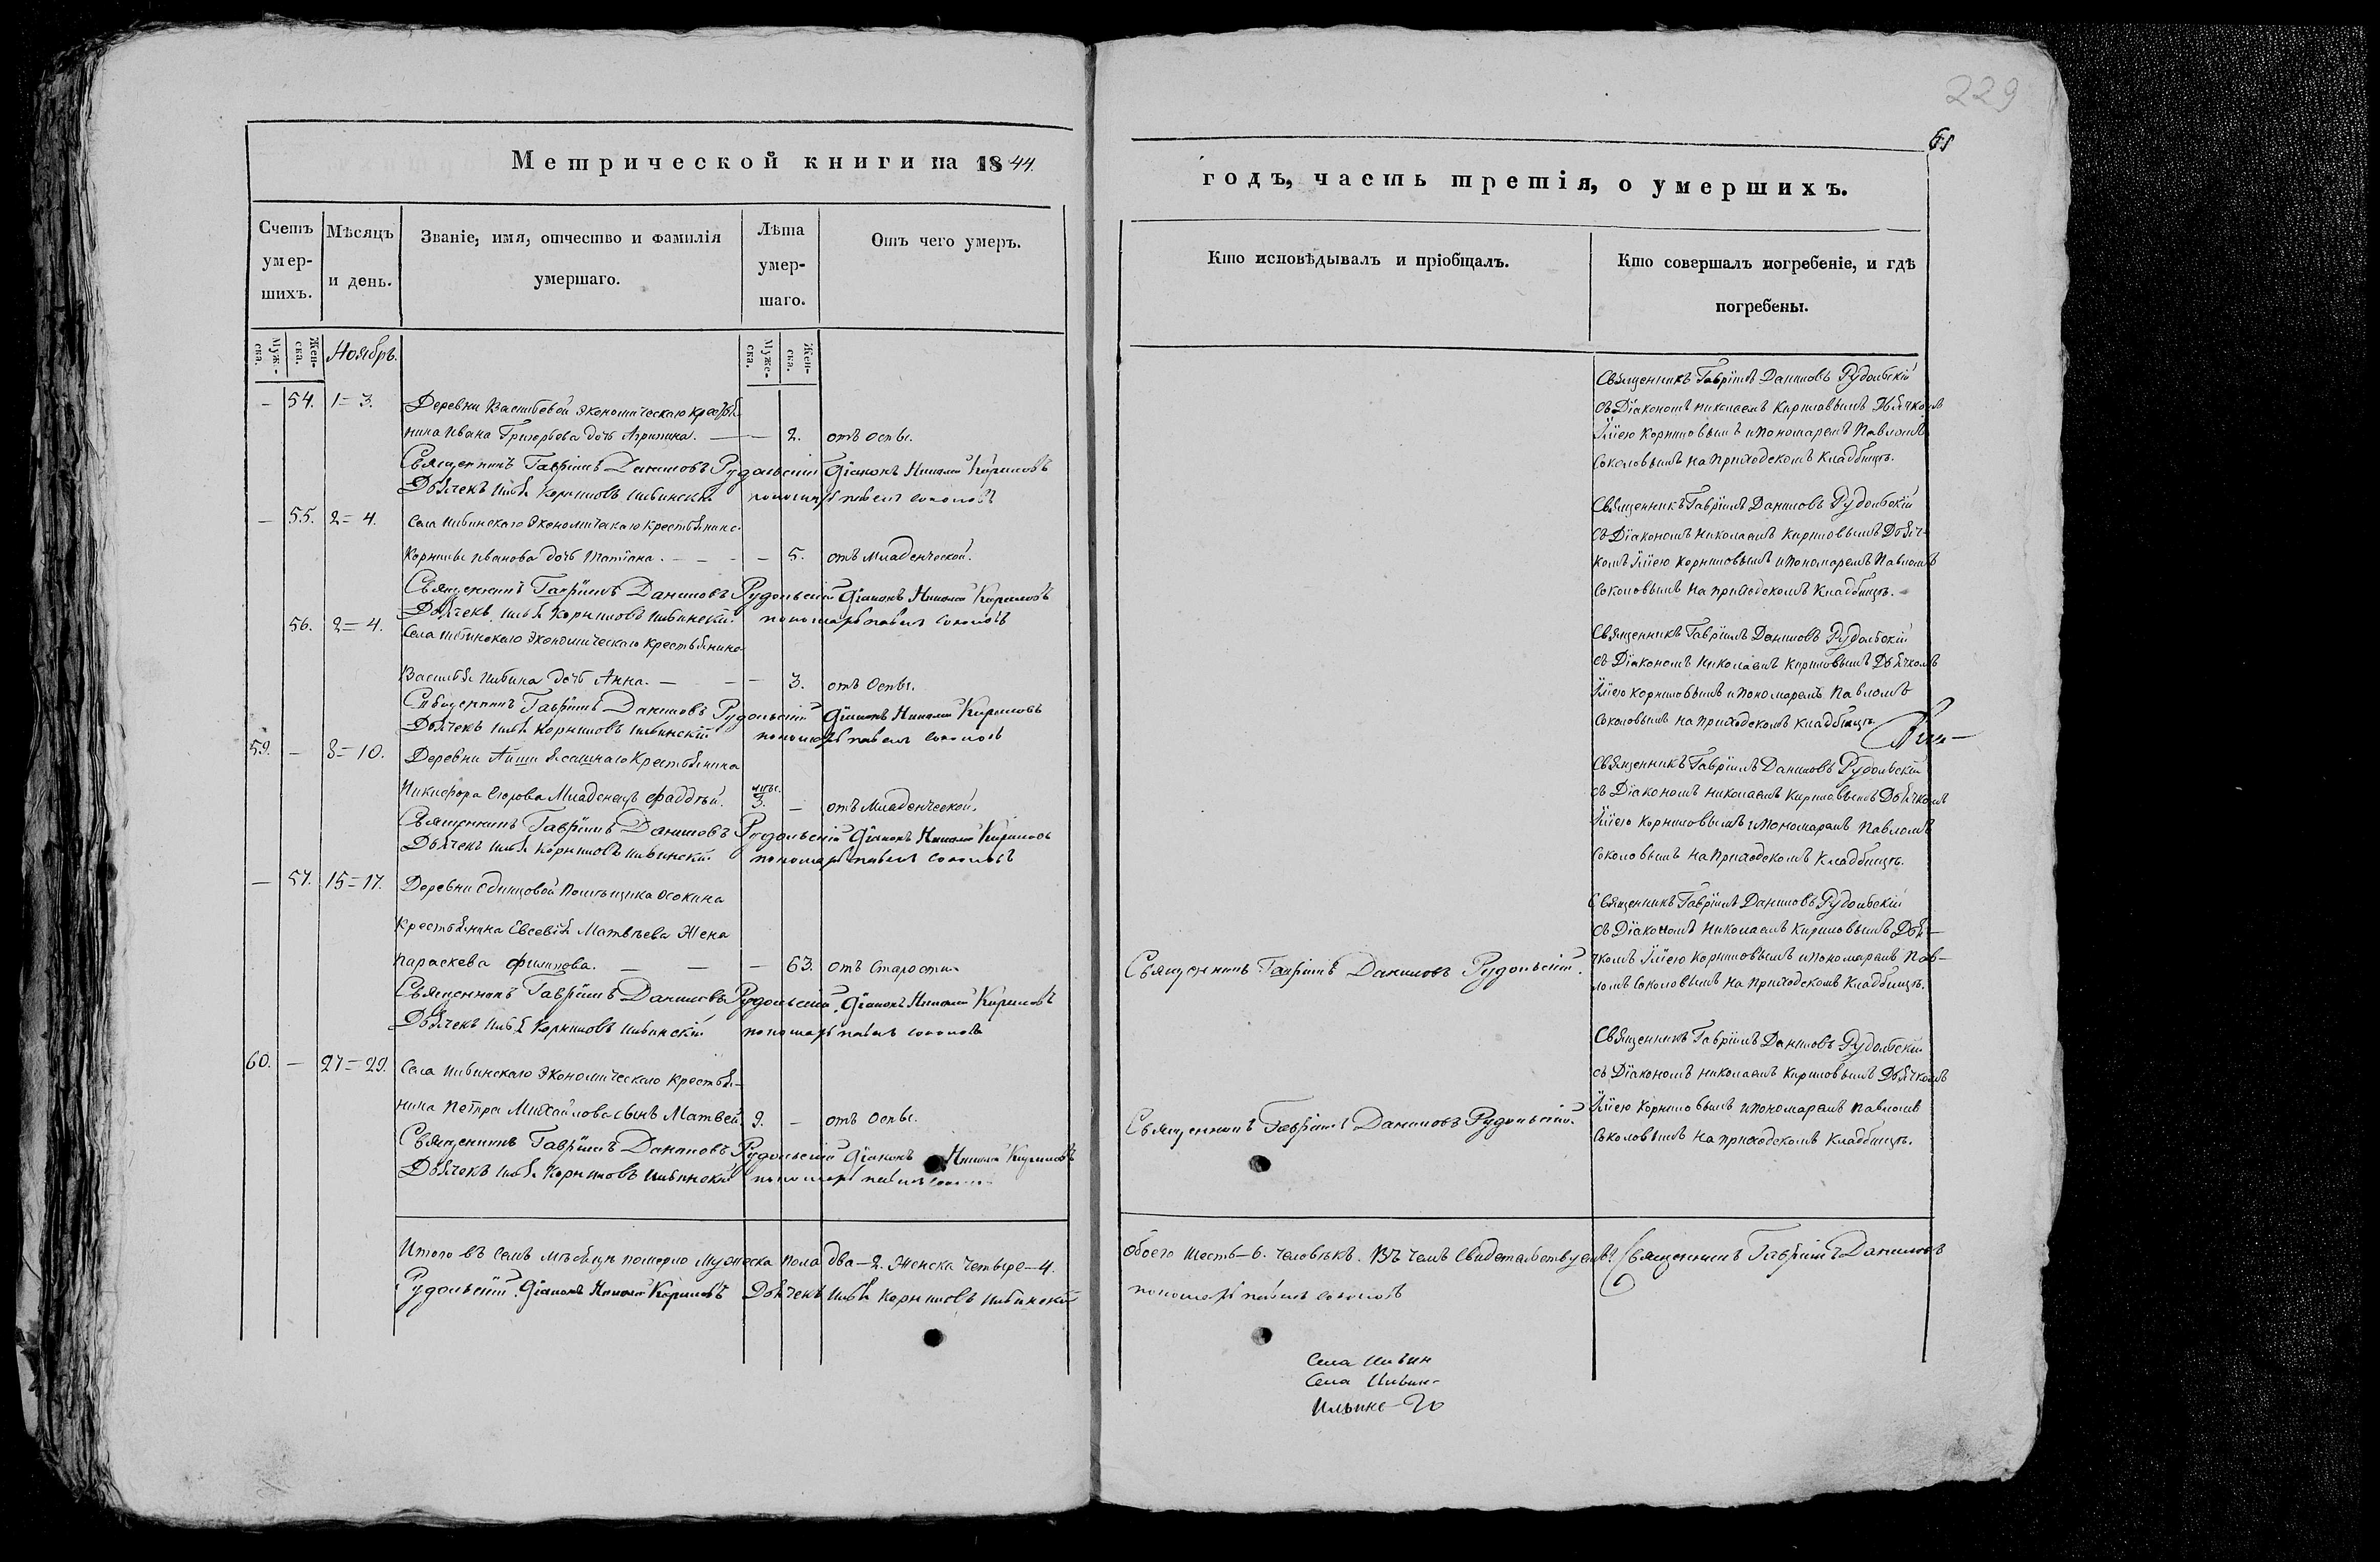 229
61
Метрической книги на 1844.
годъ, часть третія, о умершихъ.
Счетъ умер-шихъ.
Мѣсяцъ и день.
Званіе, имя, отчество и фамилія умершаго.
Лѣта умер-шаго.
Отъ чего умеръ.
Кто исповѣдывалъ и пріобщалъ.
Кто совершалъ погребеніе, и гдѣ погребены.
Муж-ска.
Жен-ска.
Ноябрь.
Муже-ска.
Жен-ска.
— 54. 1=3. Деревни Васильевой экономическаго кресть
нина Ивана Григорьева дочь Агрипина. — — 2. отъ оспы.
Священникъ Гавріилъ Даниловъ Рудольскій Діаконъ Николай Кириловъ
Дьячекъ Илья Корниловъ Ильинскій пономарь павелъ соколовъ
Священникъ Гавріилъ Даниловъ Рудольскій
съ Діакономъ Николаемъ Кириловымъ Дьячкомъ
Ильею Корниловымъ и Пономаремъ Павломъ
Соколовымъ на приходскомъ Кладбищѣ.
— 55. 2=4. Села Ильинскаго экономическаго крестьянина
Корнилы Иванова дочь Татіана. — — — 5. отъ младенческой.
Священникъ Гавріилъ Даниловъ Рудольскій Діаконъ Николай Кириловъ
Дьячекъ Илья Корниловъ Ильинскій пономарь павелъ соколовъ
Священникъ Гавріилъ Даниловъ Рудольскій
съ Діакономъ Николаемъ Кириловымъ Дьяч-
комъ Ильею Корниловымъ и Пономаремъ Павломъ
Соколовымъ на приходскомъ Кладбищѣ.
56. 2=4. Села Ильинскаго экономическаго крестьянина
Василья Ильина дочь Анна. — — — 3. отъ оспы.
Священникъ Гавріилъ Даниловъ Рудольскій Діаконъ Николай Кириловъ
Дьячекъ Илья Корниловъ Ильинскій пономарь павелъ соколовъ
Священникъ Гавріилъ Даниловъ Рудольскій
съ Діакономъ Николаемъ Кириловымъ Дьячкомъ
Ильею Корниловымъ и Пономаремъ Павломъ
Соколовымъ на приходскомъ кладбищѣ
59. — 8=10. Деревни Айши ясашнаго Крестьянина
Никифора младенецъ Фаддѣй. 3. — отъ младенческой.
Священникъ Гавріилъ Даниловъ Рудольскій Діаконъ Николай Кириловъ
Дьячекъ Илья Корниловъ Ильинскій пономарь павелъ соколовъ
Священникъ Гавріилъ Даниловъ Рудольскій
съ Діакономъ Николаемъ Кириловымъ Дьячкомъ
Ильею Корниловымъ и Пономаремъ Павломъ
Соколовымъ на приходскомъ Кладбищѣ.
— 57. 15=17. Деревни Одинцовой Помѣщика Осокина
крестьянина Евсевія Матвѣева Жена
Параскева Филипова. — — — 63. отъ старости.
Священникъ Гавріилъ Даниловъ Рудольскій.
Священникъ Гавріилъ Даниловъ Рудольскій. Діаконъ Николай Кириловъ
Дьячекъ Илья Корниловъ Ильинскій пономарь павелъ соколовъ
Священникъ Гавріилъ Даниловъ Рудольскій
съ Діакономъ Николаемъ Кириловымъ Дья-
чкомъ Ильею Корниловымъ и Пономаремъ Пав-
ломъ Соколовымъ на Приходскомъ Кладбищѣ.
60. — 27=29. Села Ильинскаго Экономическаго Крестья-
нина Петра Михайлова сынъ Матвей 9. — отъ оспы.
Священникъ Гавріилъ Даниловъ Рудольскій.
Священникъ Гавріилъ Даниловъ Рудольскій Діаконъ Николай Кириловъ
Дьячекъ Илья Корниловъ Ильинскій пономарь павелъ
Священникъ Гавріилъ Даниловъ Рудольскій
съ Діакономъ Николаемъ Кириловымъ Дьячкомъ
Ильею Корниловымъ и Пономаремъ Павломъ
Соколовымъ на приходскомъ Кладбищѣ.
Итого въ семъ мѣсяцѣ померло мужеска пола два—2. женска четыре—4.
Рудольскій. Діаконъ Николай Кириловъ Дьячекъ Илья Корниловъ Ильинскій
обоего шесть—6. человѣкъ. Въ чемъ свидетельствуемъ: Священникъ Гавріилъ Даниловъ
пономарь павелъ соколовъ
Села Ильин
Села Ильин-